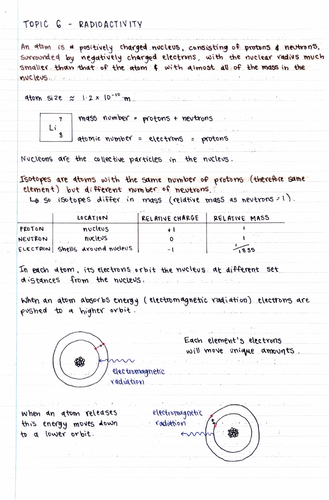 TOPIC 6 - RADIOACTIVITY
An atom is a positively charged nucleus, consisting of protons & neutrons,
surrounded by negatively charged electrons, with the nuclear radius much
smaller than that of the atom & with almost all of the mass in the
nucleus.
atom size ≈ 1.2 x 10⁻¹⁰ m
7
Li
3
mass number = protons + neutrons
atomic number = electrons = protons
Nucleons are the collective particles in the nucleus.
Isotopes are atoms with the same number of protons (therefore same
element) but different number of neutrons.
↳ so isotopes differ in mass (relative mass as neutrons = 1).
LOCATION RELATIVE CHARGE RELATIVE MASS
PROTON nucleus +1 1
NEUTRON nucleus 0 1
ELECTRON shells around nucleus -1 1/1835
In each atom, its electrons orbit the nucleus at different set
distances from the nucleus.
When an atom absorbs energy (electromagnetic radiation) electrons are
pushed to a higher orbit.
Each element's electrons
will move unique amounts.
electromagnetic
radiation
When an atom releases
this energy moves down
to a lower orbit.
electromagnetic
radiation